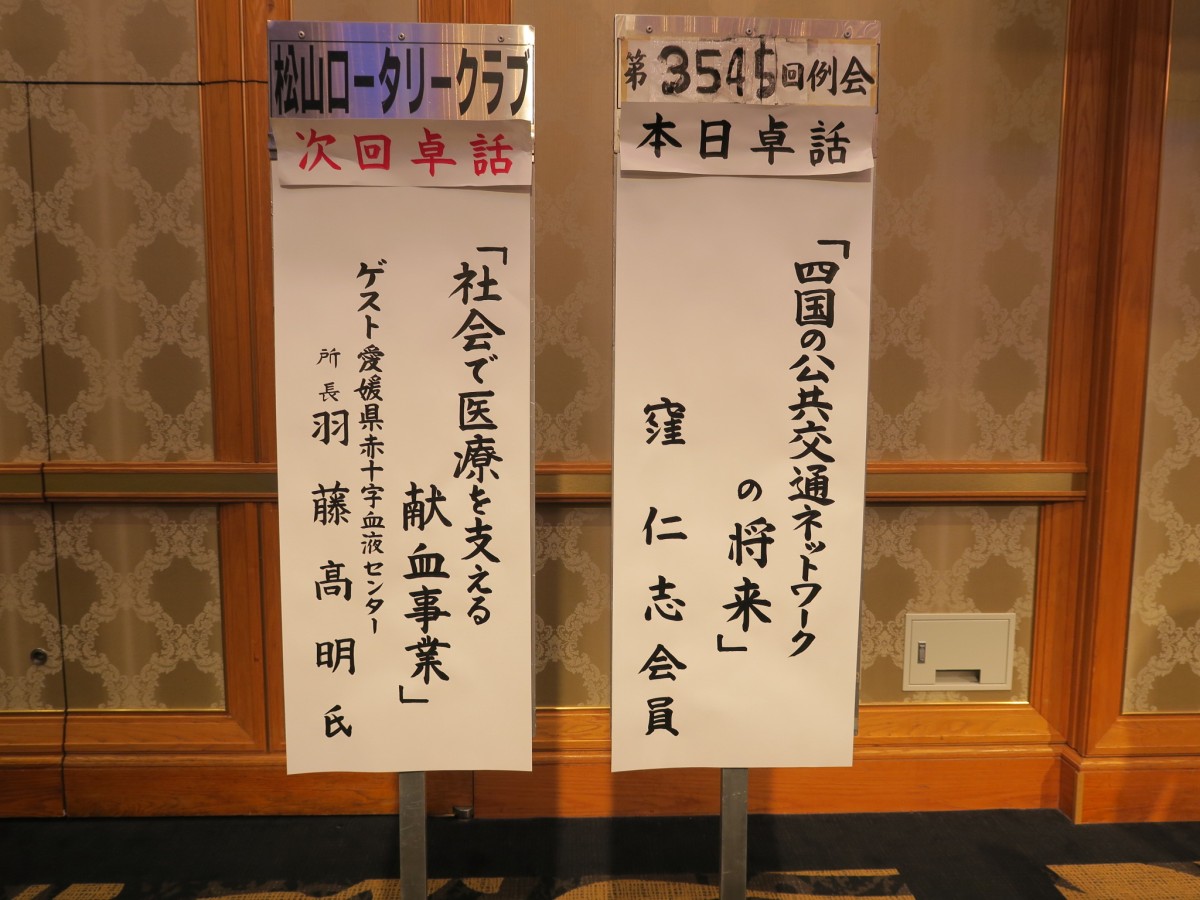 松山ロータリークラブ
次回卓話
「社会で医療を支える
献血事業」
ゲスト愛媛県赤十字血液センター
所長 羽藤高明氏
第3545回例会
本日卓話
「四国の公共交通ネットワーク
の将来」
窪仁志会員